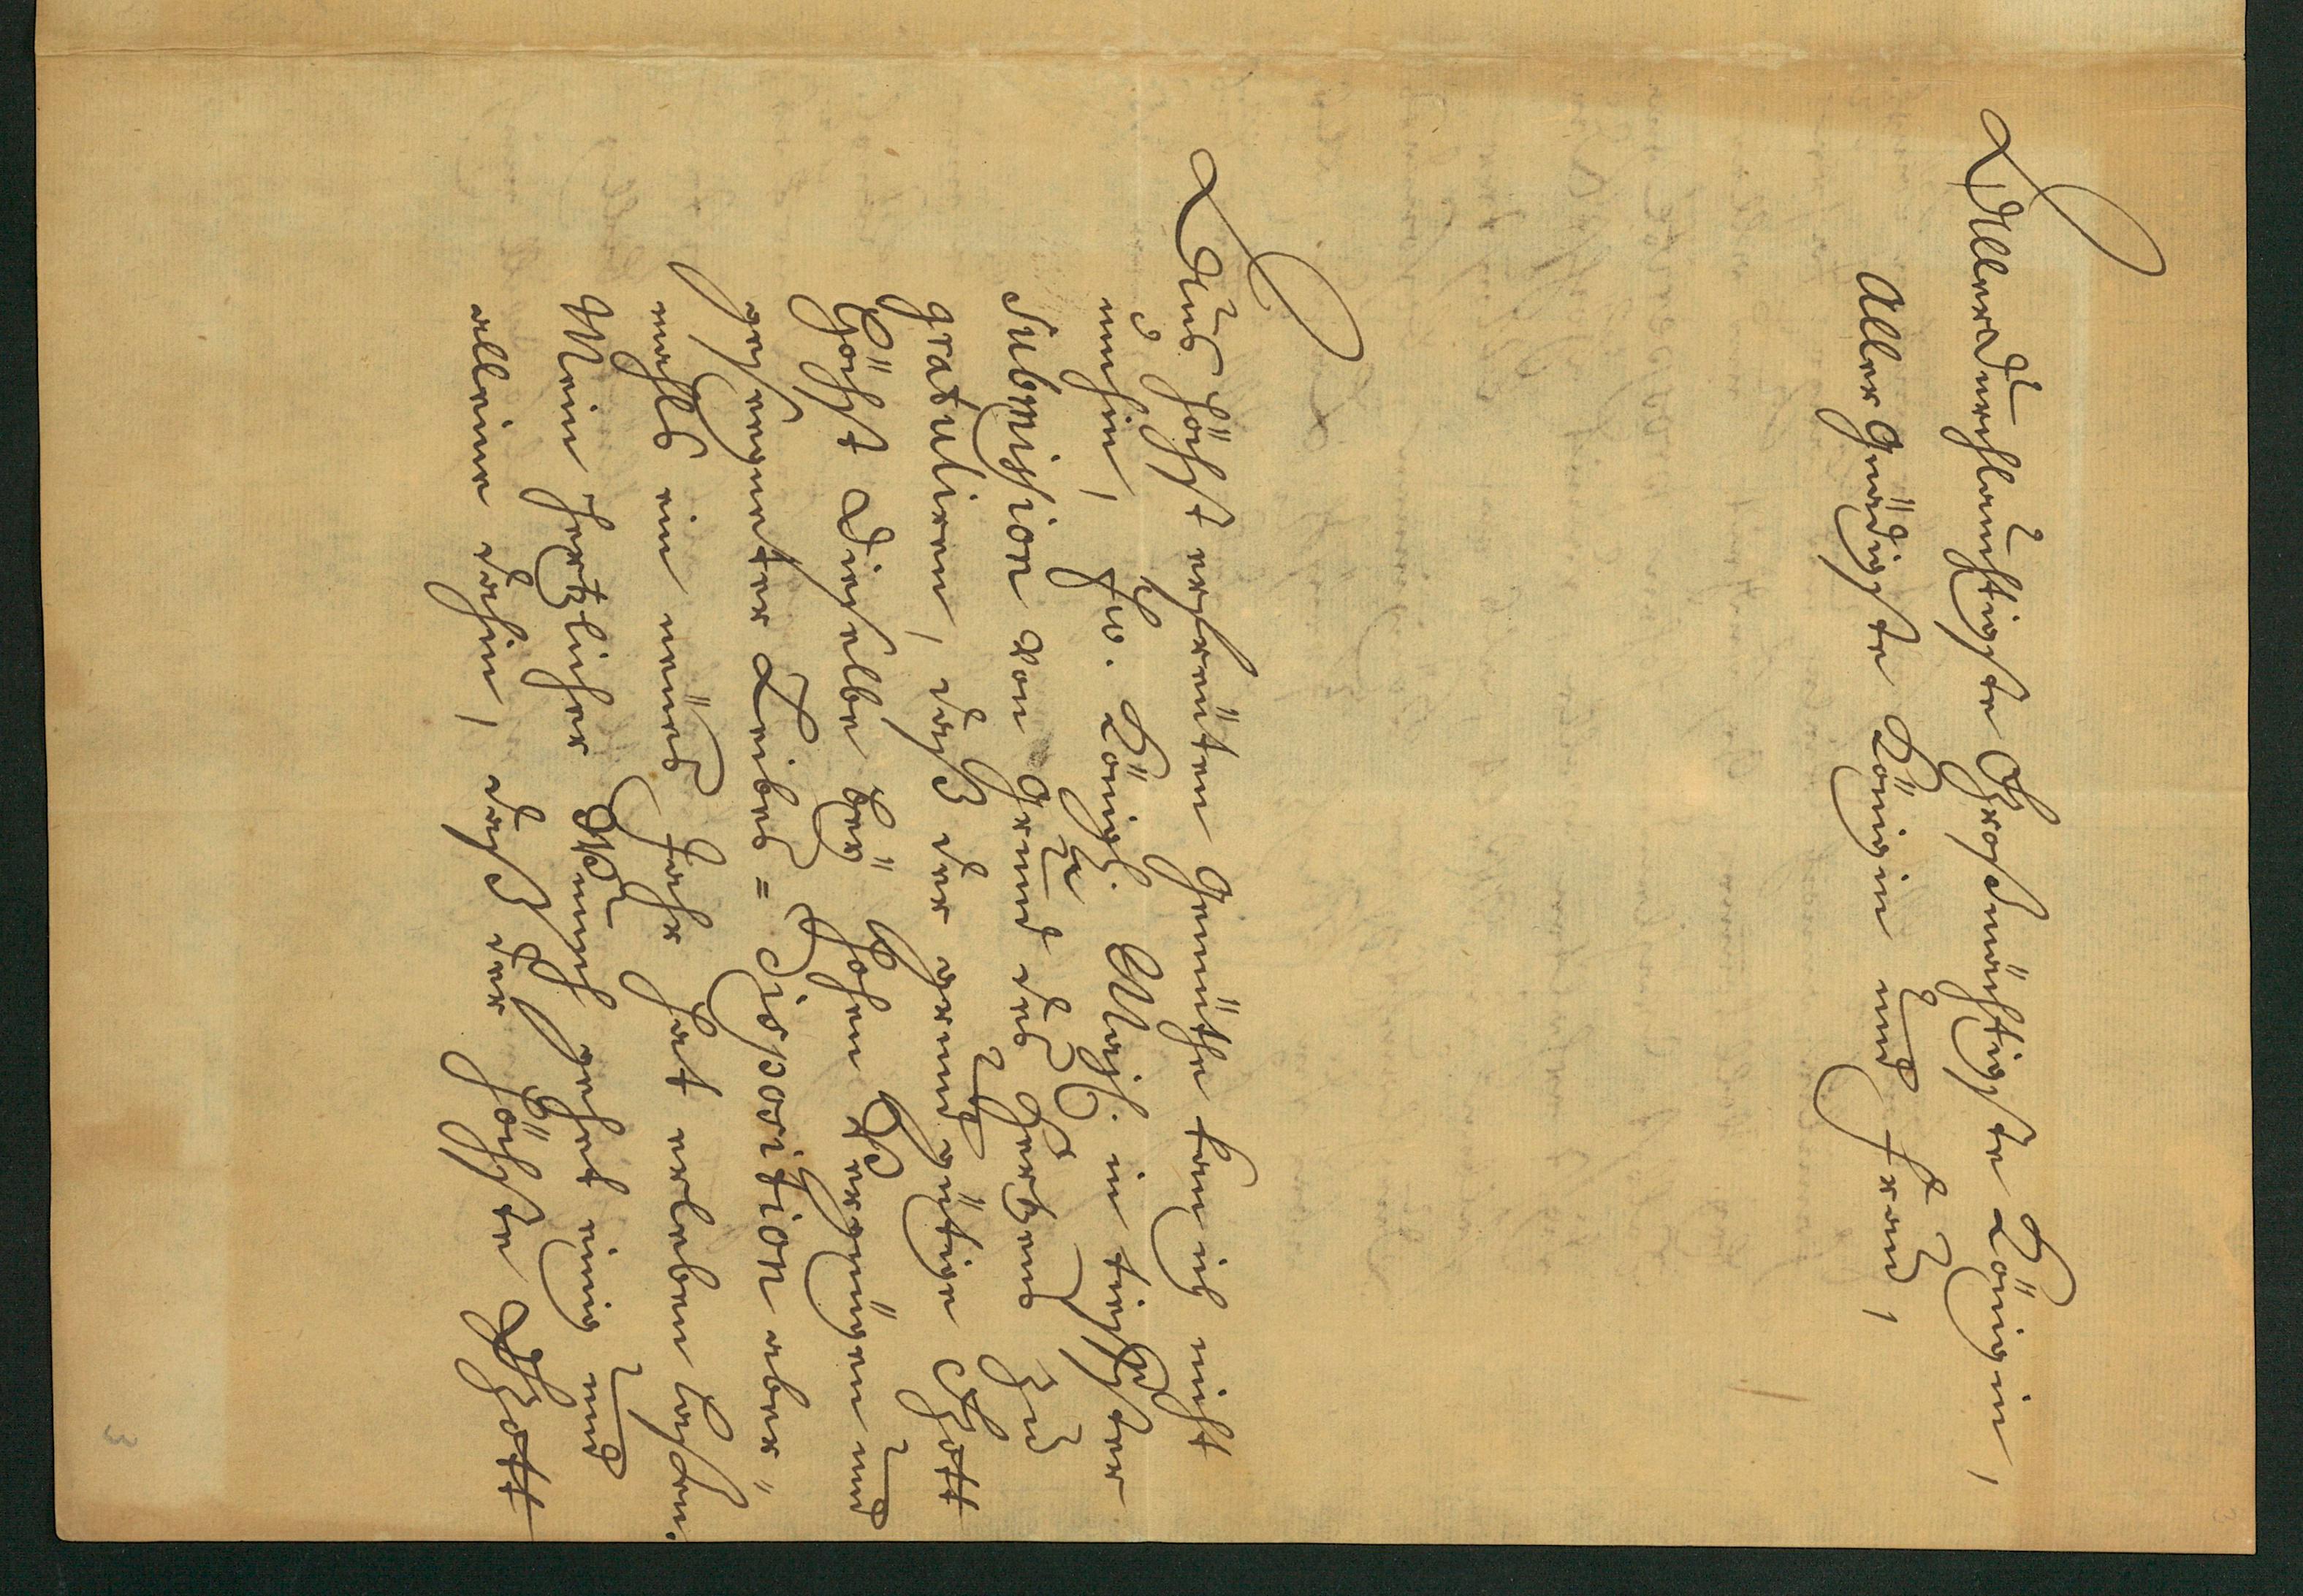 Allerdurchlauchtigste Großmächtigste Königin,
Aller Gnädigste Königin und Frau,
Aus höchst erfreutem Gemüthe kan ich nicht
umhin, Ew. Königl. Maj. in tiefster
Submission von Grund des Hertzens zu
gratuliren, daß der grundgütige Gott
Höchst Dieselbe bey hohem Vergnügen und
gesegneter Leibes=Disposition aber-
mahls ein neues Jahr hat erleben laßen.
Mein hertzlicher Wunsch gehet einig und
alleine dahin, daß der höchste Gott
3